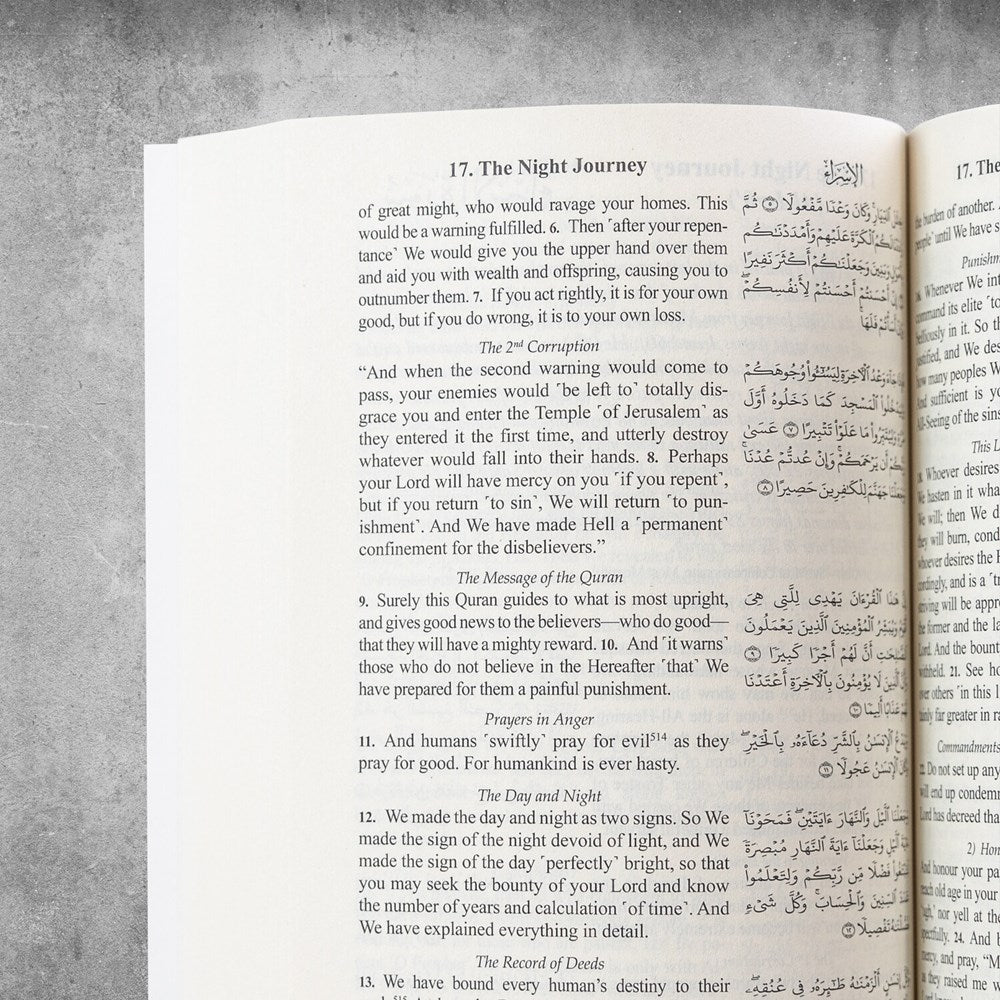 17. The Night Journey
of great might, who would ravage your homes. This
would be a warning fulfilled. 6. Then ˹after your repen-
tance˺ We would give you the upper hand over them
and aid you with wealth and offspring, causing you to
outnumber them. 7. If you act rightly, it is for your own
good, but if you do wrong, it is to your own loss.
The 2nd Corruption
“And when the second warning would come to
pass, your enemies would ˹be left to˺ totally dis-
grace you and enter the Temple ˹of Jerusalem˺ as
they entered it the first time, and utterly destroy
whatever would fall into their hands. 8. Perhaps
your Lord will have mercy on you ˹if you repent˺,
but if you return ˹to sin˺, We will return ˹to pun-
ishment˺. And We have made Hell a ˹permanent˺
confinement for the disbelievers.”
The Message of the Quran
9. Surely this Quran guides to what is most upright,
and gives good news to the believers—who do good—
that they will have a mighty reward. 10. And ˹it warns˺
those who do not believe in the Hereafter ˹that˺ We
have prepared for them a painful punishment.
Prayers in Anger
11. And humans ˹swiftly˺ pray for evil514 as they
pray for good. For humankind is ever hasty.
The Day and Night
12. We made the day and night as two signs. So We
made the sign of the night devoid of light, and We
made the sign of the day ˹perfectly˺ bright, so that
you may seek the bounty of your Lord and know
the number of years and calculation ˹of time˺. And
We have explained everything in detail.
The Record of Deeds
13. We have bound every human’s destiny to their
الإِسْرَاء
ٱلدِّيَارِ ۚ وَكَانَ وَعْدًا مَّفْعُولًا ۝٥ ثُمَّ
ٱلْكَرَّةَ عَلَيْهِمْ وَأَمْدَدْنَـٰكُم
وَبَنِينَ وَجَعَلْنَـٰكُمْ أَكْثَرَ نَفِيرًا
إِنْ أَحْسَنتُمْ أَحْسَنتُمْ لِأَنفُسِكُمْ ۖ
أَسَأْتُمْ فَلَهَا ۚ
وَعْدُ ٱلْـَٔاخِرَةِ لِيَسُـۥٓـُٔوا۟ وُجُوهَكُمْ
ٱلْمَسْجِدَ كَمَا دَخَلُوهُ أَوَّلَ
وَلِيُتَبِّرُوا۟ مَا عَلَوْا۟ تَتْبِيرًا ۝٧ عَسَىٰ
أَن يَرْحَمَكُمْ ۚ وَإِنْ عُدتُّمْ عُدْنَا ۘ
جَهَنَّمَ لِلْكَـٰفِرِينَ حَصِيرًا ۝٨
هَـٰذَا ٱلْقُرْءَانَ يَهْدِى لِلَّتِى هِىَ
وَيُبَشِّرُ ٱلْمُؤْمِنِينَ ٱلَّذِينَ يَعْمَلُونَ
أَنَّ لَهُمْ أَجْرًا كَبِيرًا ۝٩
ٱلَّذِينَ لَا يُؤْمِنُونَ بِٱلْـَٔاخِرَةِ أَعْتَدْنَا
عَذَابًا أَلِيمًا ۝١٠
ٱلْإِنسَـٰنُ بِٱلشَّرِّ دُعَآءَهُۥ بِٱلْخَيْرِ ۖ
ٱلْإِنسَـٰنُ عَجُولًا ۝١١
ٱلَّيْلَ وَٱلنَّهَارَ ءَايَتَيْنِ ۖ فَمَحَوْنَآ
ٱلَّيْلِ وَجَعَلْنَآ ءَايَةَ ٱلنَّهَارِ مُبْصِرَةً
فَضْلًا مِّن رَّبِّكُمْ وَلِتَعْلَمُوا۟
ٱلسِّنِينَ وَٱلْحِسَابَ ۚ وَكُلَّ شَىْءٍ
تَفْصِيلًا ۝١٢
إِنسَـٰنٍ أَلْزَمْنَـٰهُ طَـٰٓئِرَهُۥ فِى عُنُقِهِۦ ۖ
17. The
the burden of another.
people˺ until We have s
Whenever We
command its elite
in it. So
and We
many peoples
sufficient is
of the sins
Whoever desires
hasten in it
will; then We
they will burn,
whoever desires the
and is a
will be
the former and the
Lord. And the
withheld. 21. See
others ˹in this
far greater in
Commandments
Do not set up any
will end up
Lord has decreed
2)
And honour your
old age in your
nor yell at
24. And
mercy, and pray,
as they raised me